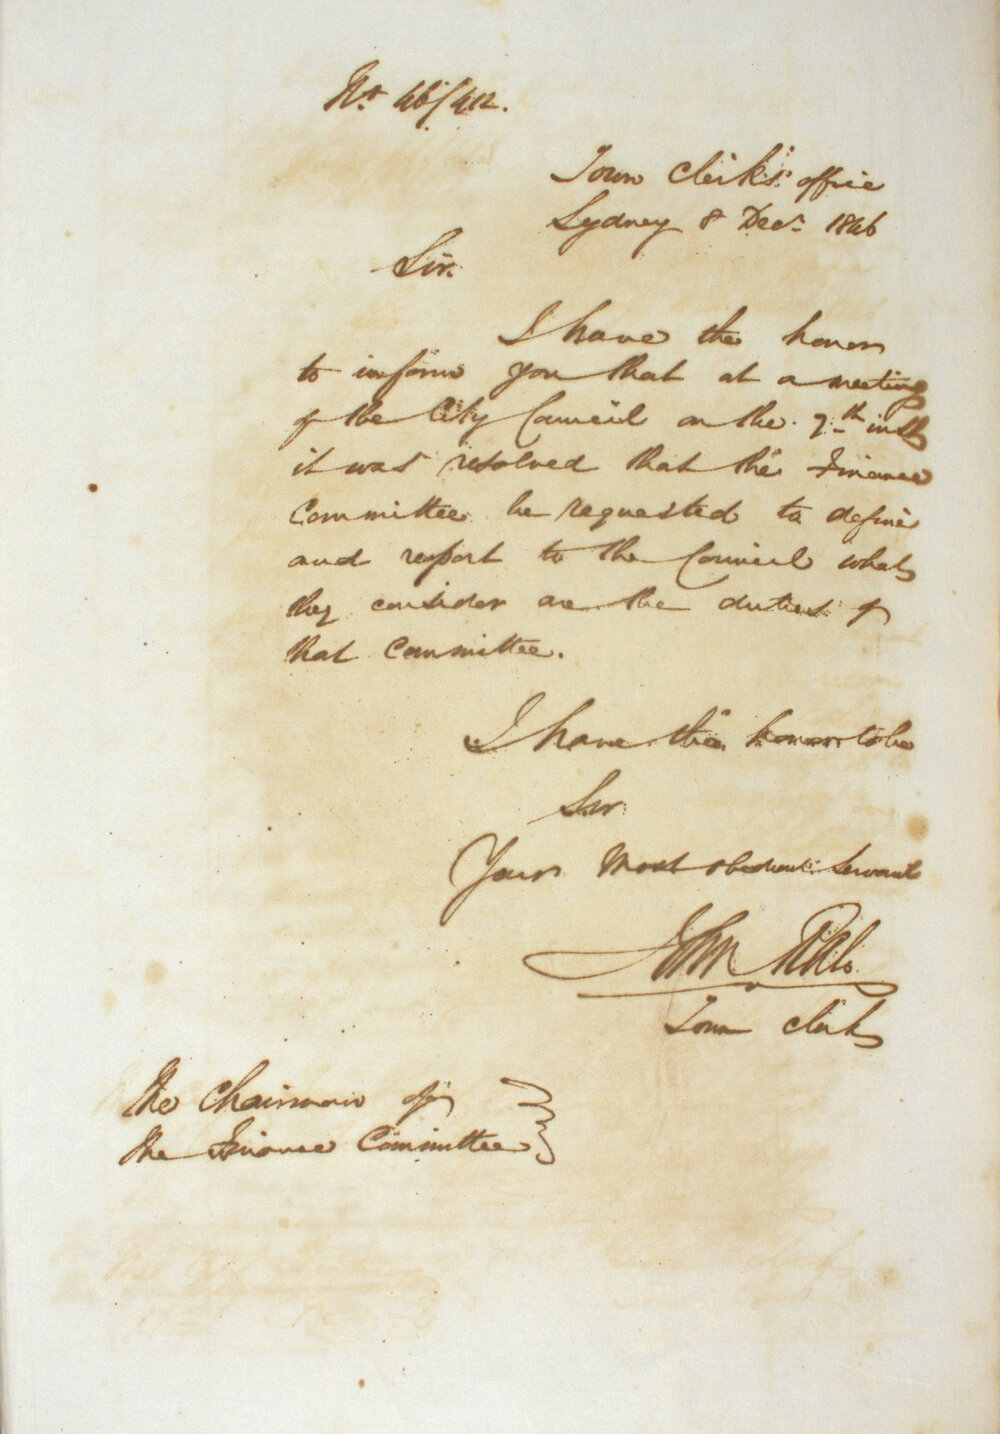 No. 46/412.
Town Clerk's office
Sydney 8 Decr. 1846
Sir.
I have the honor
to inform you that at a meeting
of the City Council on the 7th inst
it was resolved that the Finance
Committee be requested to define
and report to the Council what
they consider are the duties of
that Committee.
I have the honor to be
Sir
Your most obedient servant
John
Town Clerk
The Chairman of
the Finance Committee